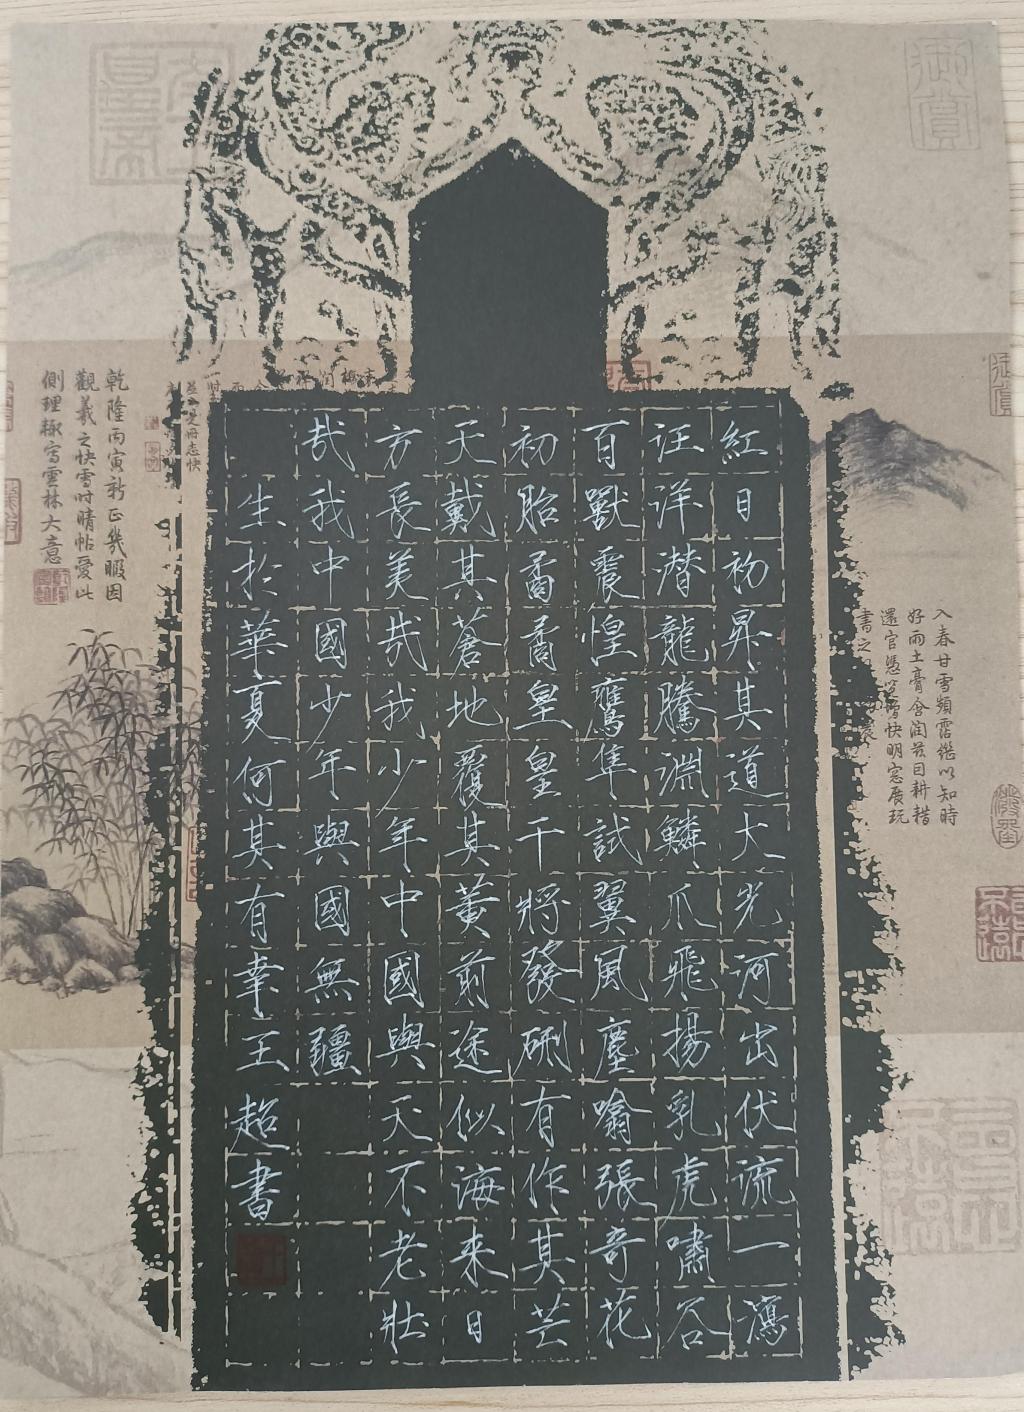 紅日初昇其道大光河出伏流一瀉
汪洋潛龍騰淵鱗爪飛揚乳虎嘯谷
百獸震惶鷹隼試翼風塵噏張奇花
初胎矞矞皇皇干將發硎有作其芒
天戴其蒼地覆其黃前途似海來日
方長美哉我少年中國與天不老壯
哉我中國少年與國無疆
生於華夏何其有幸王超書
入春甘雪頻霑繼以知時
好雨土膏含潤茲目耕揩
還官憑 快明窓展玩
書之
乾隆丙寅新正幾暇因
觀羲之快雪时晴帖愛此
側理輒寫雲林大意
御賞